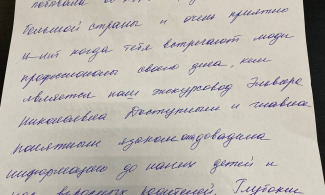 большой страны и очень приятно
когда тебя встречают люди
профессионалы своего дела, как
является наш экскурсовод Эльвира
Николаевна Доступным и главное
понятным языком
информацию до наших детей и
нас взрослых родителей, Глубокие